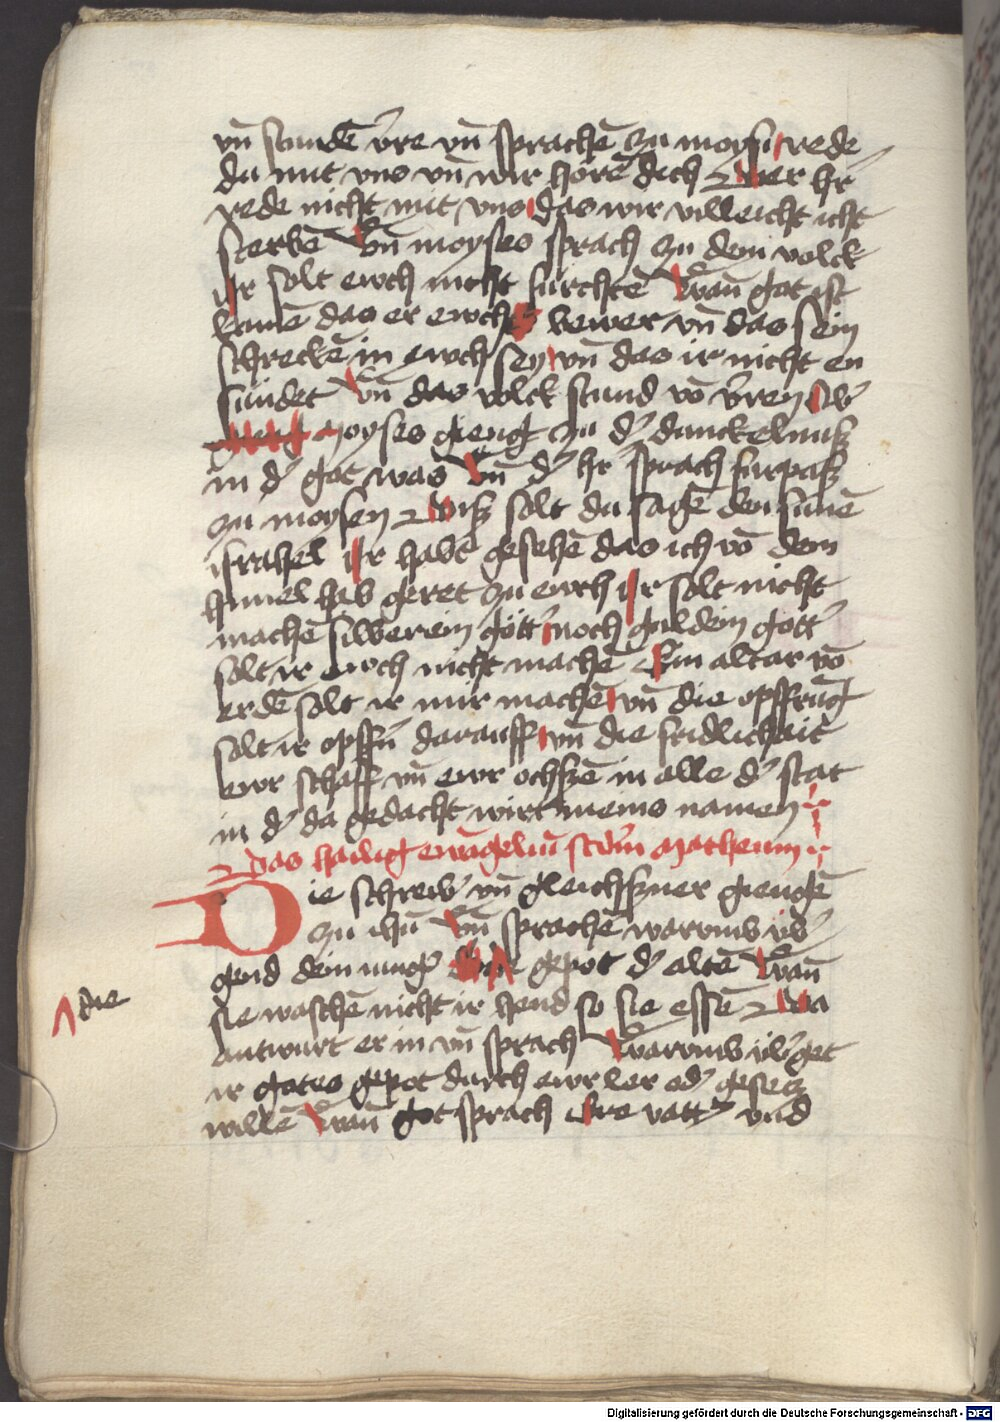 vn̄ stundē v̓re vn̄ sprachē zu moysi rede
du mit vns vn̄ wir hörē dich Der h̓r
rede nicht mit vns das wir villeicht icht
sterbē Vn̄ moyses sprach zu dem volck
ir solt ewch nicht fürchtē Wan̄ got ist
kumē das er ewch bewer vn̄ das sein
schreckē in ewch sey vn̄ das ir nicht en
sündet Vn̄ das volck stund vō v̓ren
moyses gieng zu d̓ dunckelnuß
in d̓ got was Vn̄ d̓ h̓r sprach furpaß
zu moysen Diß solt du sagē den sunē
israhel Ir habt gesehē das ich vō dem
himel hab geret zu ewch Ir solt nicht
machē silberein gött̓ noch guldein gött̓
solt ir ewch nicht machē Ein altar vō
erdē solt ir mir machē vn̄ die opffrūg
solt ir opff̓n darauff vn̄ die fridlichait
ewr schaff vn̄ ewr ochsē in alle d̓ stat
in d̓ da gedacht wirt meins namen
Das hailig ewāgeliū scd̓m Matheum
Die schreib̓ vn̄ gleichßner giengē
zu ihū Vn̄ sprachē warumb vb̓
gend dein iung̓ gepot d̓ altē Wan̄
sie waschē nicht ir hend so sie essē Da
⋀ die
antwurt er in vn̄ sprach Warumb vb̓get
ir gotes gepot durch ewr ler od̓ gesetz
willē Wan̄ got sprach Ere vatt̓ vnd
Digitalisierung gefördert durch die Deutsche Forschungsgemeinschaft - DFG